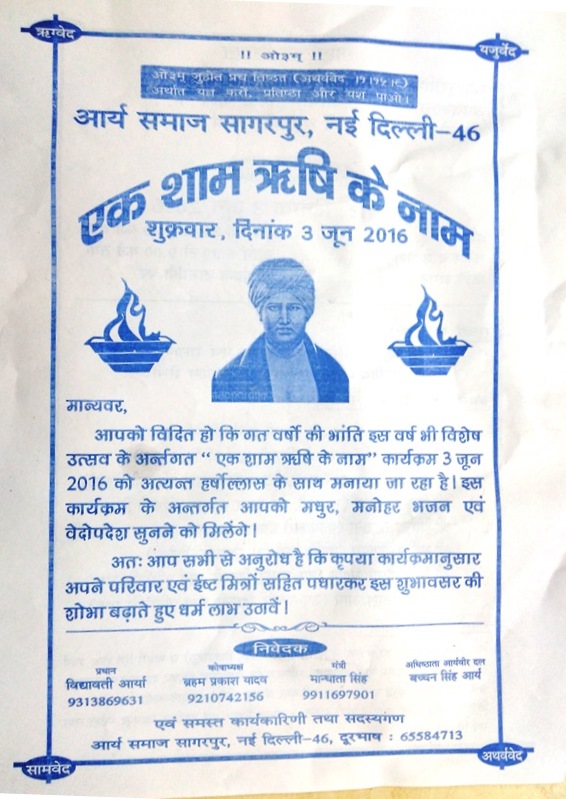 ऋग्वेद
यजुर्वेद
!! ओ३म् !!
ओ३म् जुहोत प्रच तिष्ठत (अथर्ववेद
अर्थात यज्ञ करो, प्रतिष्ठा और यश पाओ।
आर्य समाज सागरपुर, नई दिल्ली-46
एक शाम ऋषि के नाम
शुक्रवार, दिनांक 3 जून 2016
मान्यवर,
आपको विदित हो कि गत वर्षो की भांति इस वर्ष भी विशेष
उत्सव के अर्न्तगत “ एक शाम ऋषि के नाम” कार्यक्रम 3 जून
2016 को अत्यन्त हर्षोल्लास के साथ मनाया जा रहा है। इस
कार्यक्रम के अन्तर्गत आपको मधुर, मनोहर भजन एवं
वेदोपदेश सुनने को मिलेंगे।
अतः आप सभी से अनुरोध है कि कृपया कार्यक्रमानुसार
अपने परिवार एवं ईष्ट मित्रों सहित पधारकर इस शुभावसर की
शोभा बढ़ाते हुए धर्म लाभ उठावें।
निवेदक
प्रधान
विद्यावती आर्या
9313869631
कोषाध्यक्ष
ब्रहम प्रकाश यादव
9210742156
मंत्री
मान्धाता सिंह
9911697901
अधिष्ठाता आर्यवीर दल
बच्चन सिंह आर्य
एवं समस्त कार्यकारिणी तथा सदस्यगण
आर्य समाज सागरपुर, नई दिल्ली-46, दूरभाष : 65584713
सामवेद
अथर्ववेद